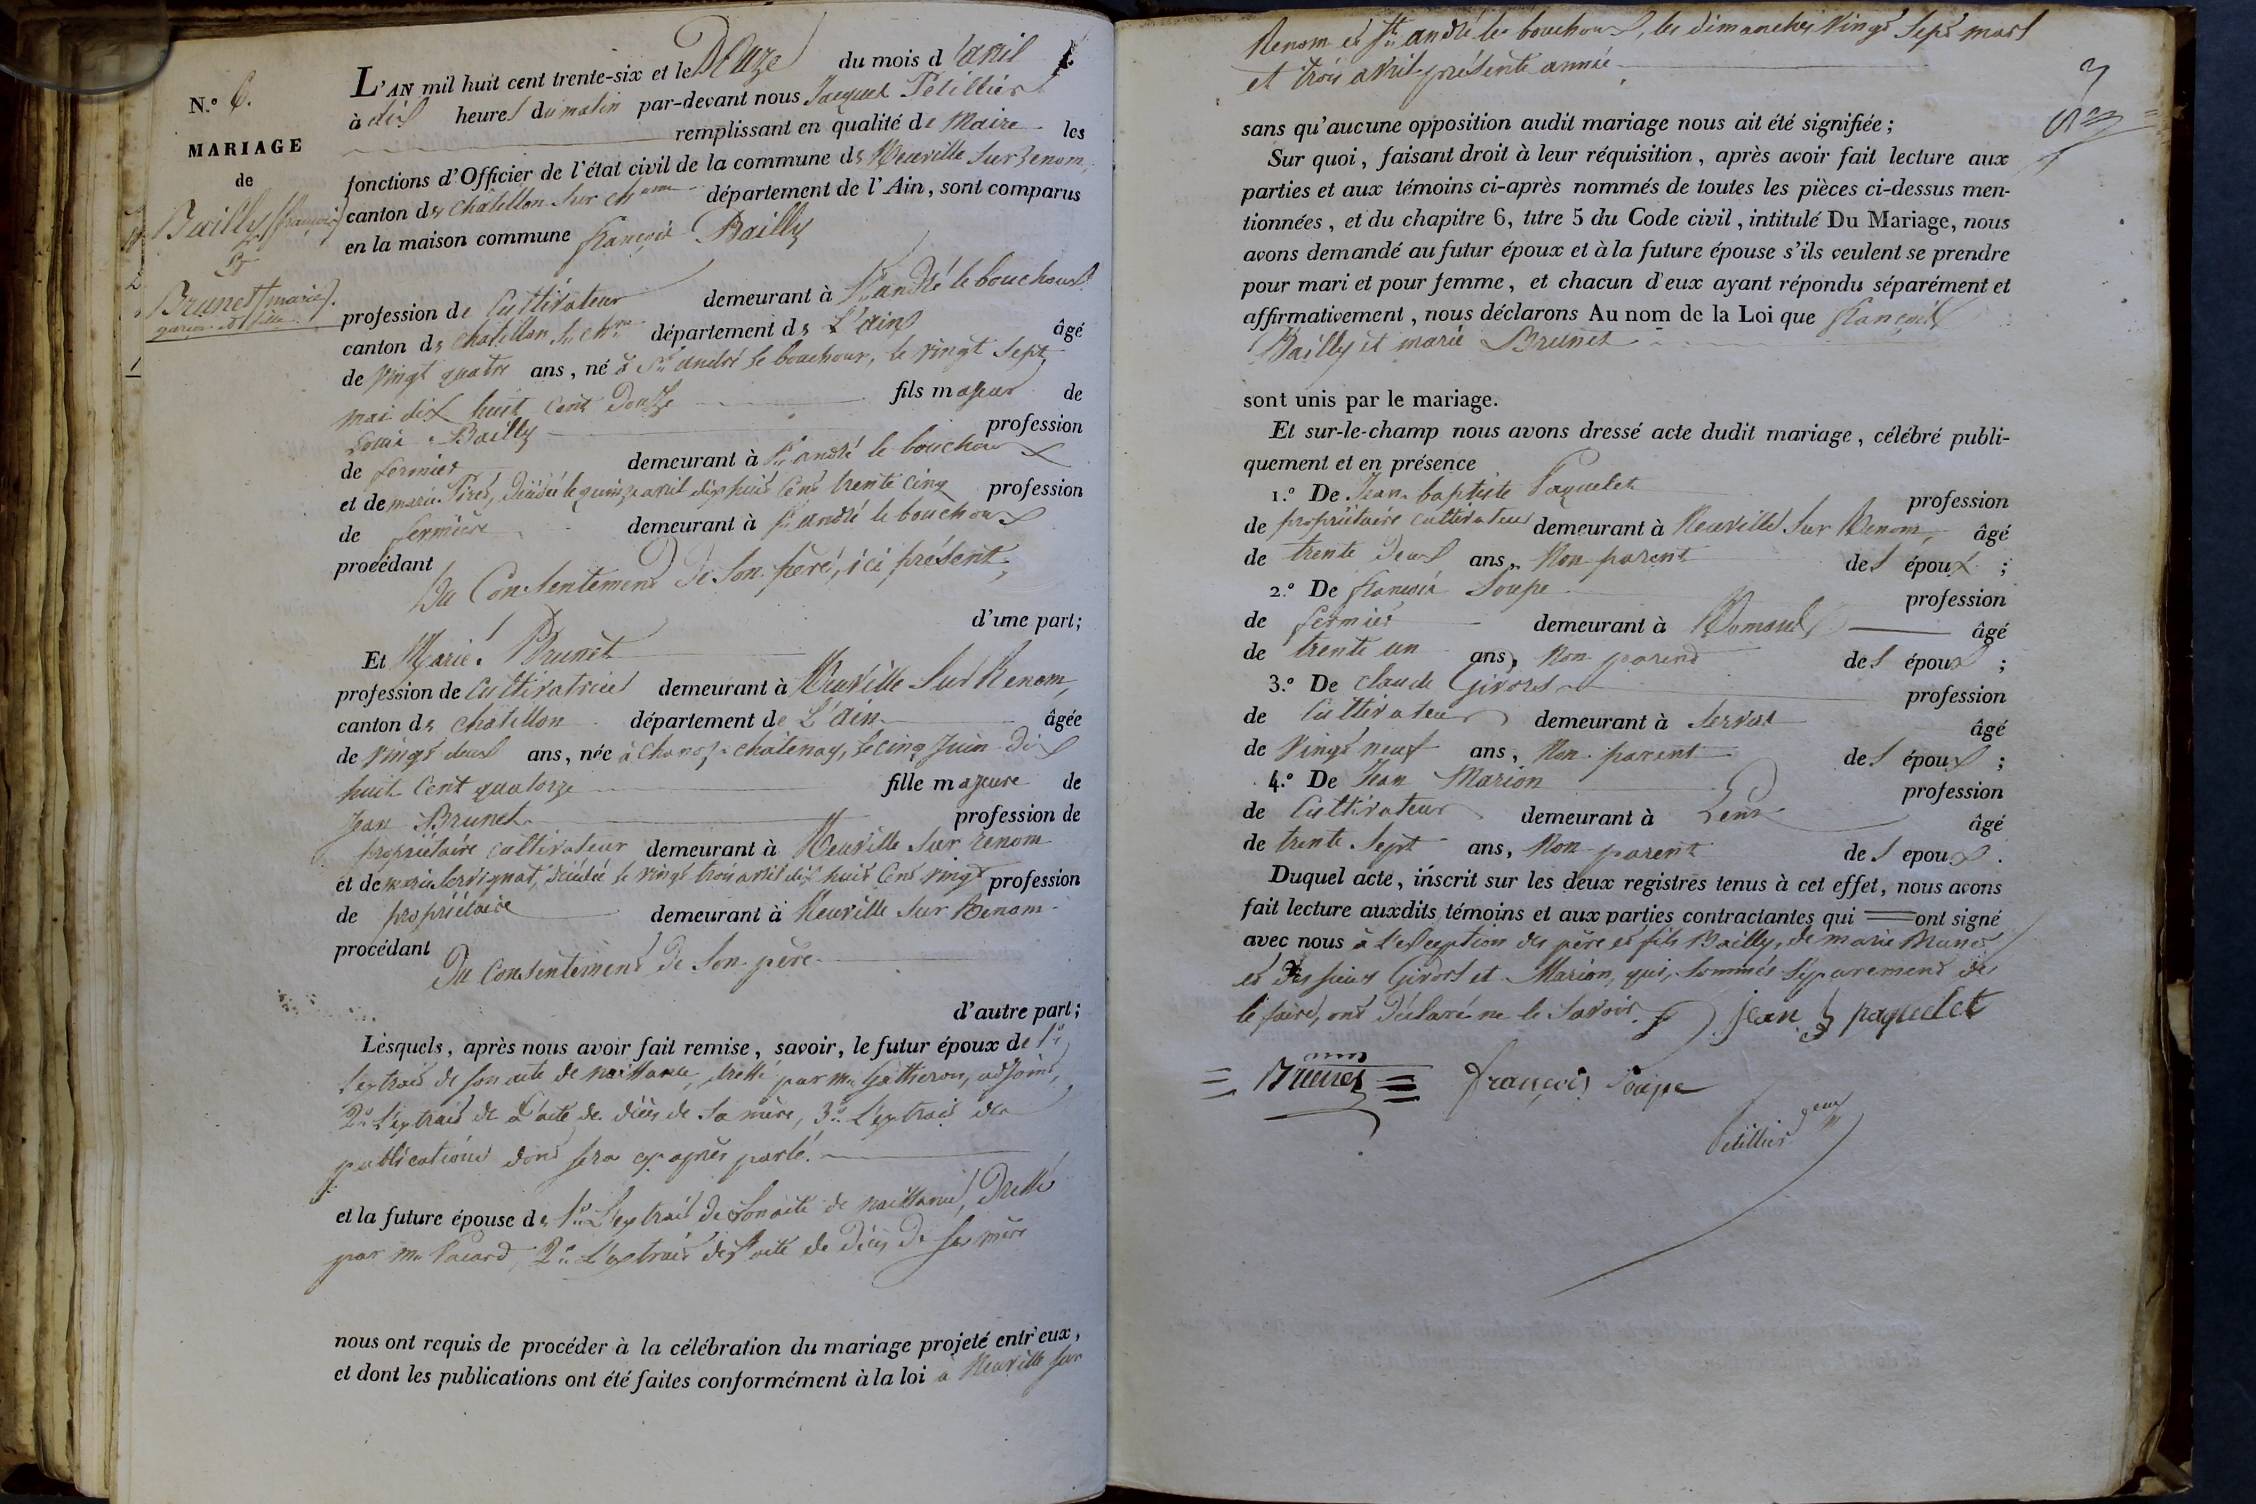 N.° 6.
MARIAGE
de
Bailly françois
et
Brunet marie
garçon et fille
L'AN mil huit cent trente-six et le Douze du mois d'avril
à dix heures du matin par-devant nous Jacques Pétillier
remplissant en qualité de Maire les
fonctions d'Officier de l'état civil de la commune de Neuville sur renom,
canton de Châtillon sur chne département de l'Ain, sont comparus
en la maison commune françois Bailly
profession de Cultivateur demeurant à St andré le bouchoux
canton de chatillon sr chne département de L'ain âgé
de vingt quatre ans, né à St andré le bouchoux, le vingt sept
mai dix huit cent douze fils majeur de
Louis Bailly profession
de fermier demeurant à St andré le bouchoux
et de marie Piret, décédée le quinze avril dix huit cent trente cinq profession
de fermière demeurant à St andré le bouchoux
procédant
Du Consentement de son père, ici présent,
d'une part;
Et Marie Brunet
profession de Cultivatrice demeurant à Neuville sur Renom,
canton de châtillon département de L'ain âgée
de vingt deux ans, née à Chanoz-chatenay, le cinq Juin dix
huit cent quatorze fille majeure de
Jean Brunet profession de
propriétaire cultivateur demeurant à Neuville sur renom
et de marie décédée le vingt trois avril dix huit cent vingt profession
de propriétaire demeurant à Neuville sur Renom
procédant
Du consentement de son père
d'autre part;
Lesquels, après nous avoir fait remise, savoir, le futur époux de 1°
l'extrait de son acte de naissance, dressé par mr adjoint,
2° L'extrait de l'acte de décès de sa mère, 3° L'extrait des
publications dont sera cy après parlé.
et la future épouse de 1° L'extrait de son acte de naissance, Dressé
par mr Pacard, 2° L'extrait de l'acte de décès de sa mère
nous ont requis de procéder à la célébration du mariage projeté entr'eux,
et dont les publications ont été faites conformément à la loi à Neuville sur
Renom et St andré le bouchoux, les dimanches vingt sept mars
et trois avril présente année
sans qu'aucune opposition audit mariage nous ait été signifiée;
Sur quoi, faisant droit à leur réquisition, après avoir fait lecture aux
parties et aux témoins ci-après nommés de toutes les pièces ci-dessus men-
tionnées, et du chapitre 6, titre 5 du Code civil, intitulé Du Mariage, nous
avons demandé au futur époux et à la future épouse s'ils veulent se prendre
pour mari et pour femme, et chacun d'eux ayant répondu séparément et
affirmativement, nous déclarons Au nom de la Loi que françois
Bailly et marie Brunet
sont unis par le mariage.
Et sur-le-champ nous avons dressé acte dudit mariage, célébré publi-
quement et en présence
1.° De Jean baptiste Paquelet profession
de propriétaire cultivateur demeurant à Neuville sur Renom, âgé
de trente deux ans, Non parent des époux;
2.° De françois Soupe profession
de fermier demeurant à âgé
de trente un ans, Non parent des époux;
3.° De claude Givors profession
de Cultivateur demeurant à Servas âgé
de vingt neuf ans, Non parent des époux;
4.° De Jean Marion profession
de Cultivateur demeurant à Lent âgé
de trente sept ans, Non parent des epoux.
Duquel acte, inscrit sur les deux registres tenus à cet effet, nous avons
fait lecture auxdits témoins et aux parties contractantes qui ont signé
avec nous à l'exception des père et fils Bailly, de marie Brunet
et des sieurs Givors et Marion, qui, sommés séparément de
le faire, ont déclaré ne le savoir. jean b paquelet
Brunet françois Soupe
Petillier